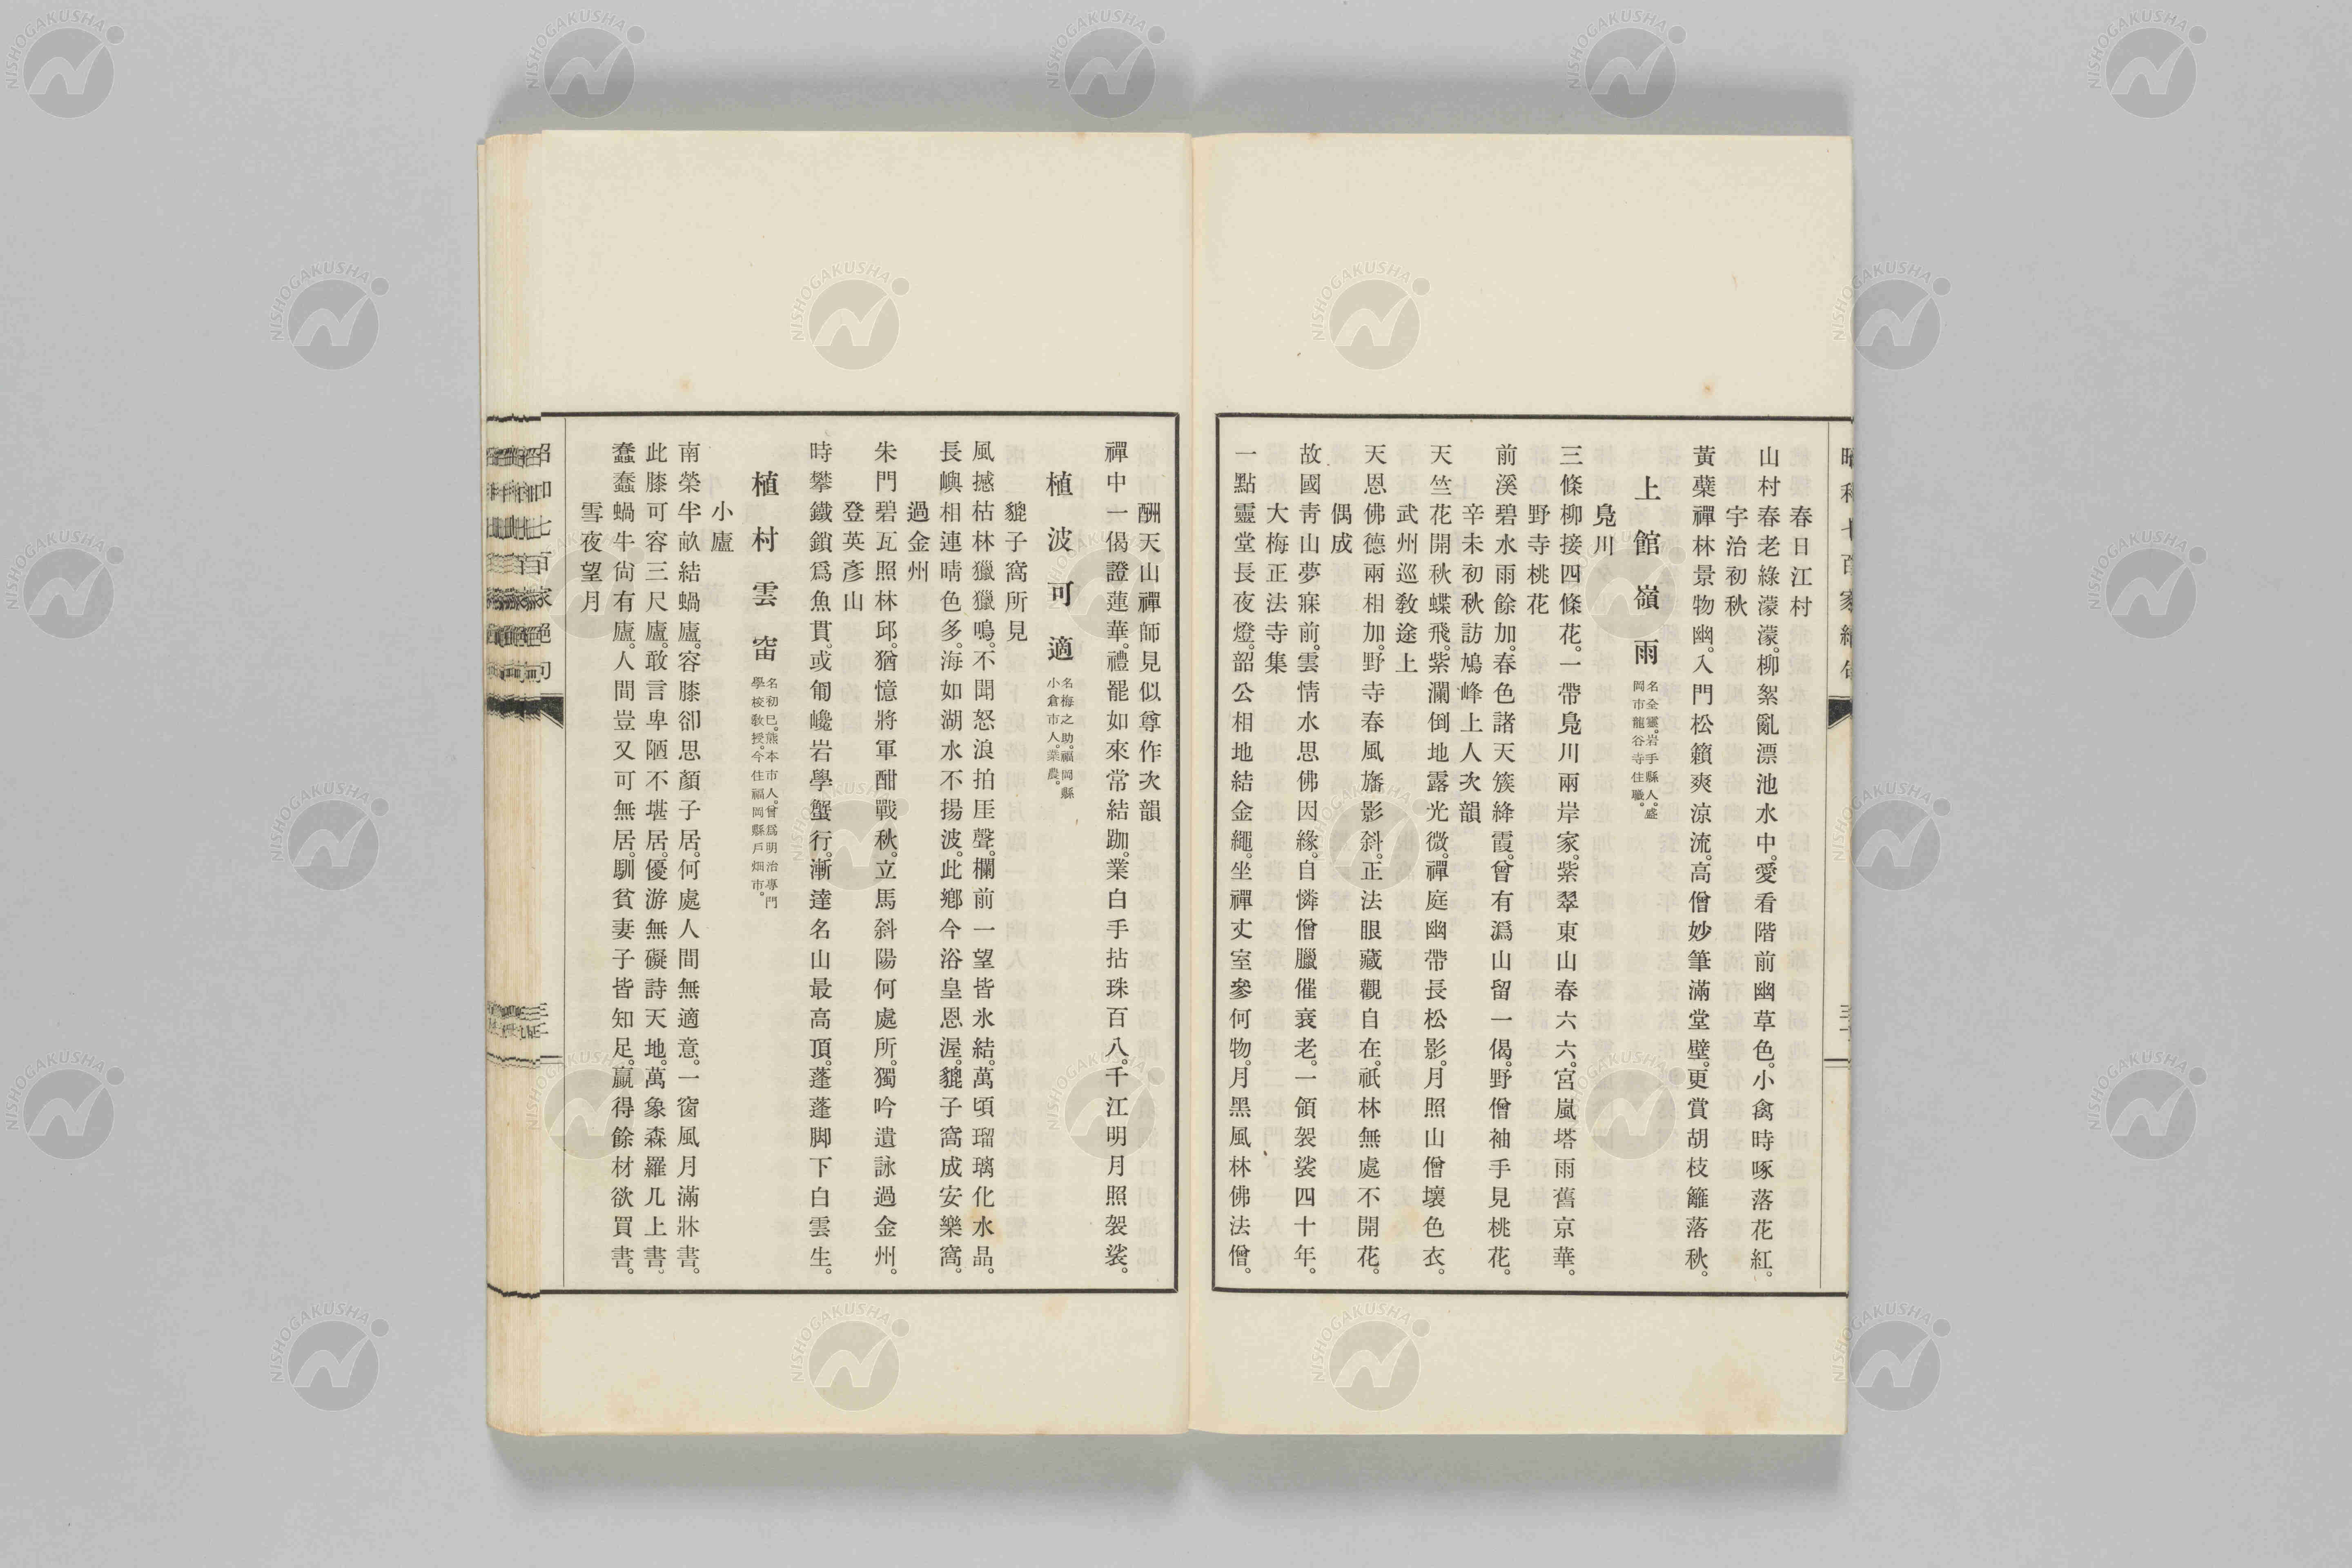 春日江村
山村春老綠濛濛。柳絮亂漂池水中。愛看階前幽草色。小禽時啄落花紅。
宇治初秋
黃蘗禪林景物幽。入門松籟爽涼流。高僧妙筆滿堂壁。更賞胡枝籬落秋。
上館嶺雨
名全靈。岩手縣人。盛
岡市龍谷寺住職。
鳧川
三條柳接四條花。一帶鳧川兩岸家。紫翠東山春六六。宮嵐塔雨舊京華。
野寺桃花
前溪碧水雨餘加。春色諸天簇絳霞。曾有潙山留一偈。野僧袖手見桃花。
辛未初秋訪鳩峰上人次韻
天竺花開秋蝶飛。紫瀾倒地露光微。禪庭幽帶長松影。月照山僧壞色衣。
武州巡教途上
天恩佛德兩相加。野寺春風旛影斜。正法眼藏觀自在。祇林無處不開花。
偶成
故國靑山夢寐前。雲情水思佛因緣。自憐僧臘催衰老。一領袈裟四十年。
大梅正法寺集
一點靈堂長夜燈。韶公相地結金繩。坐禪丈室參何物。月黑風林佛法僧。
酬天山禪師見似尊作次韻
禪中一偈證蓮華。禮罷如來常結跏。業白手拈珠百八。千江明月照袈裟。
植波可適
名梅之助。福岡縣
小倉市人。業農。
貔子窩所見
風撼枯林獵獵鳴。不聞怒浪拍厓聲。欄前一望皆氷結。萬頃瑠璃化水晶。
長嶼相連晴色多。海如湖水不揚波。此鄕今浴皇恩渥。貔子窩成安樂窩。
過金州
朱門碧瓦照林邱。猶憶將軍酣戰秋。立馬斜陽何處所。獨吟遺詠過金州。
登英彥山
時攀鐵鎖爲魚貫。或匍巉岩學蟹行。漸達名山最高頂。蓬蓬脚下白雲生。
植村雲宙
名初巳。熊本市人。曾爲明治專門
學校敎授。今住福岡縣戶畑市。
小廬
南榮半畝結蝸廬。容膝卻思顏子居。何處人間無適意。一窗風月滿牀書。
此膝可容三尺廬。敢言卑陋不堪居。優游無礙詩天地。萬象森羅几上書。
蠢蠢蝸牛尙有廬。人間豈又可無居。馴貧妻子皆知足。贏得餘材欲買書。
雪夜望月